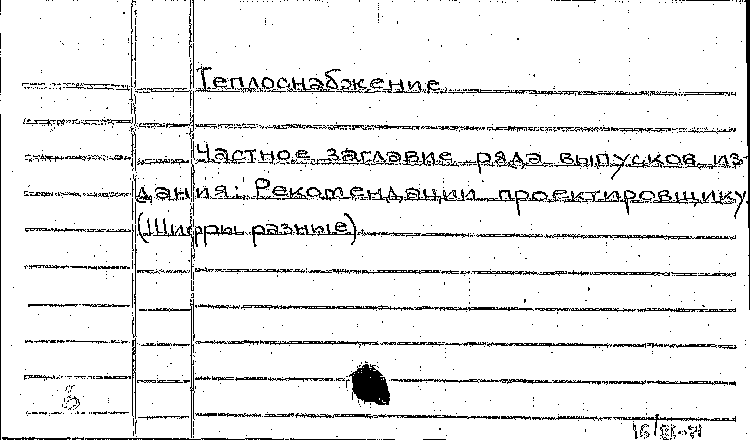 Теплоснабжение
Частное заглавие ряда выпусков из-
дания: Рекомендации проектировщику.
(Шифры разные)